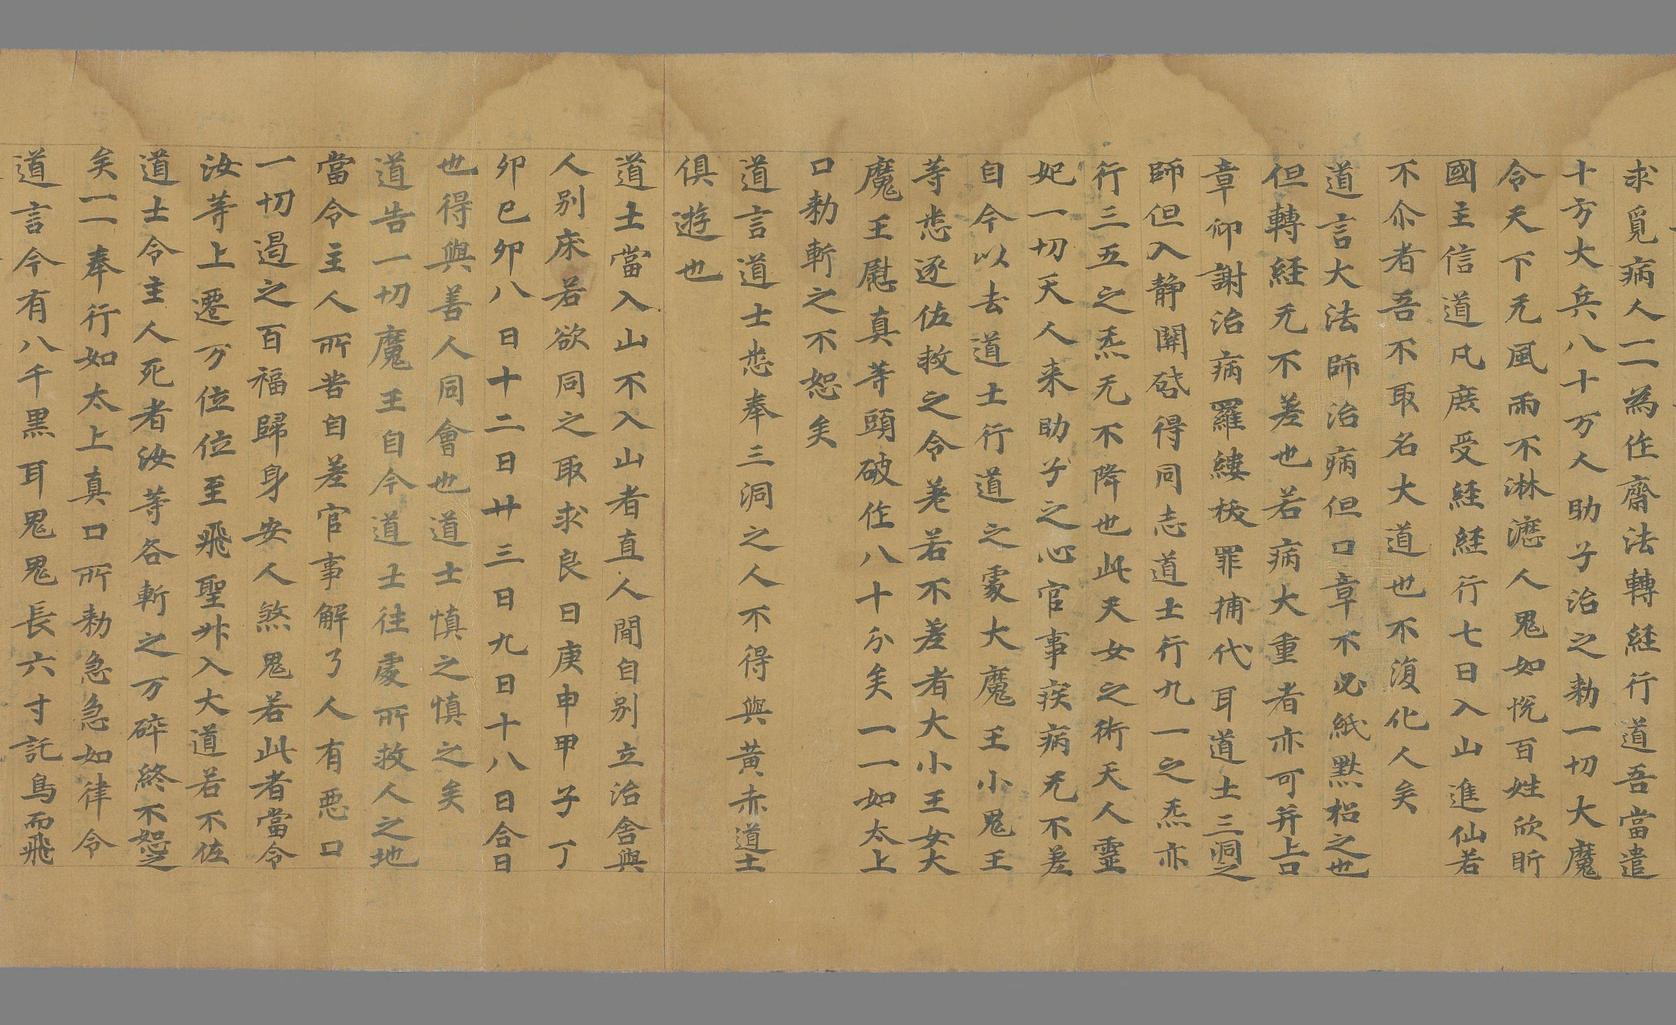 求覓病人一一為作齋法轉経行道吾當遣
十方大兵八十万人助子治之勑一切大魔
令天下无風雨不淋瀝人鬼如悅百姓欣昕
國主信道凡庻受経経行七日入山進仙若
不尒者吾不取名大道也不復化人矣
道言大法師治病但口章不必紙默柖之也
但轉経无不差也若病大重者亦可并上口
章仰謝治病羅縷掞罪捕代耳道士三洞之
師但入靜開啓得同志道士行九一之炁亦
行三五之炁无不降也此天女之術天人靈
妃一切天人来助子之心官事疾病无不差
自今以去道士行道之處大魔王小鬼王
等悉逐佐救之令差若不差者大小王女大
魔王慰真等頭破作八十分矣一一如太上
口勑斬之不恕矣
道言道士悉奉三洞之人不得與黄赤道士
俱遊也
道士當入山不入山者直人間自別立治舍與
人別床若欲同之取求良日庚申甲子丁
卯巳卯八日十二日廿三日九日十八日合日
也得與善人同會也道士慎之慎之矣
道告一切魔王自今道士往處所救人之地
當令主人所苦自差官事解了人有惡口
一切遏之百福歸身安人煞鬼若此者當令
汝等上遷万位位至飛聖卅入大道若不佐
道士令主人死者汝等各斬之万碎終不恕之
矣一一奉行如太上真口所勑急急如律令
道言今有八千黑耳鬼鬼長六寸託鳥而飛